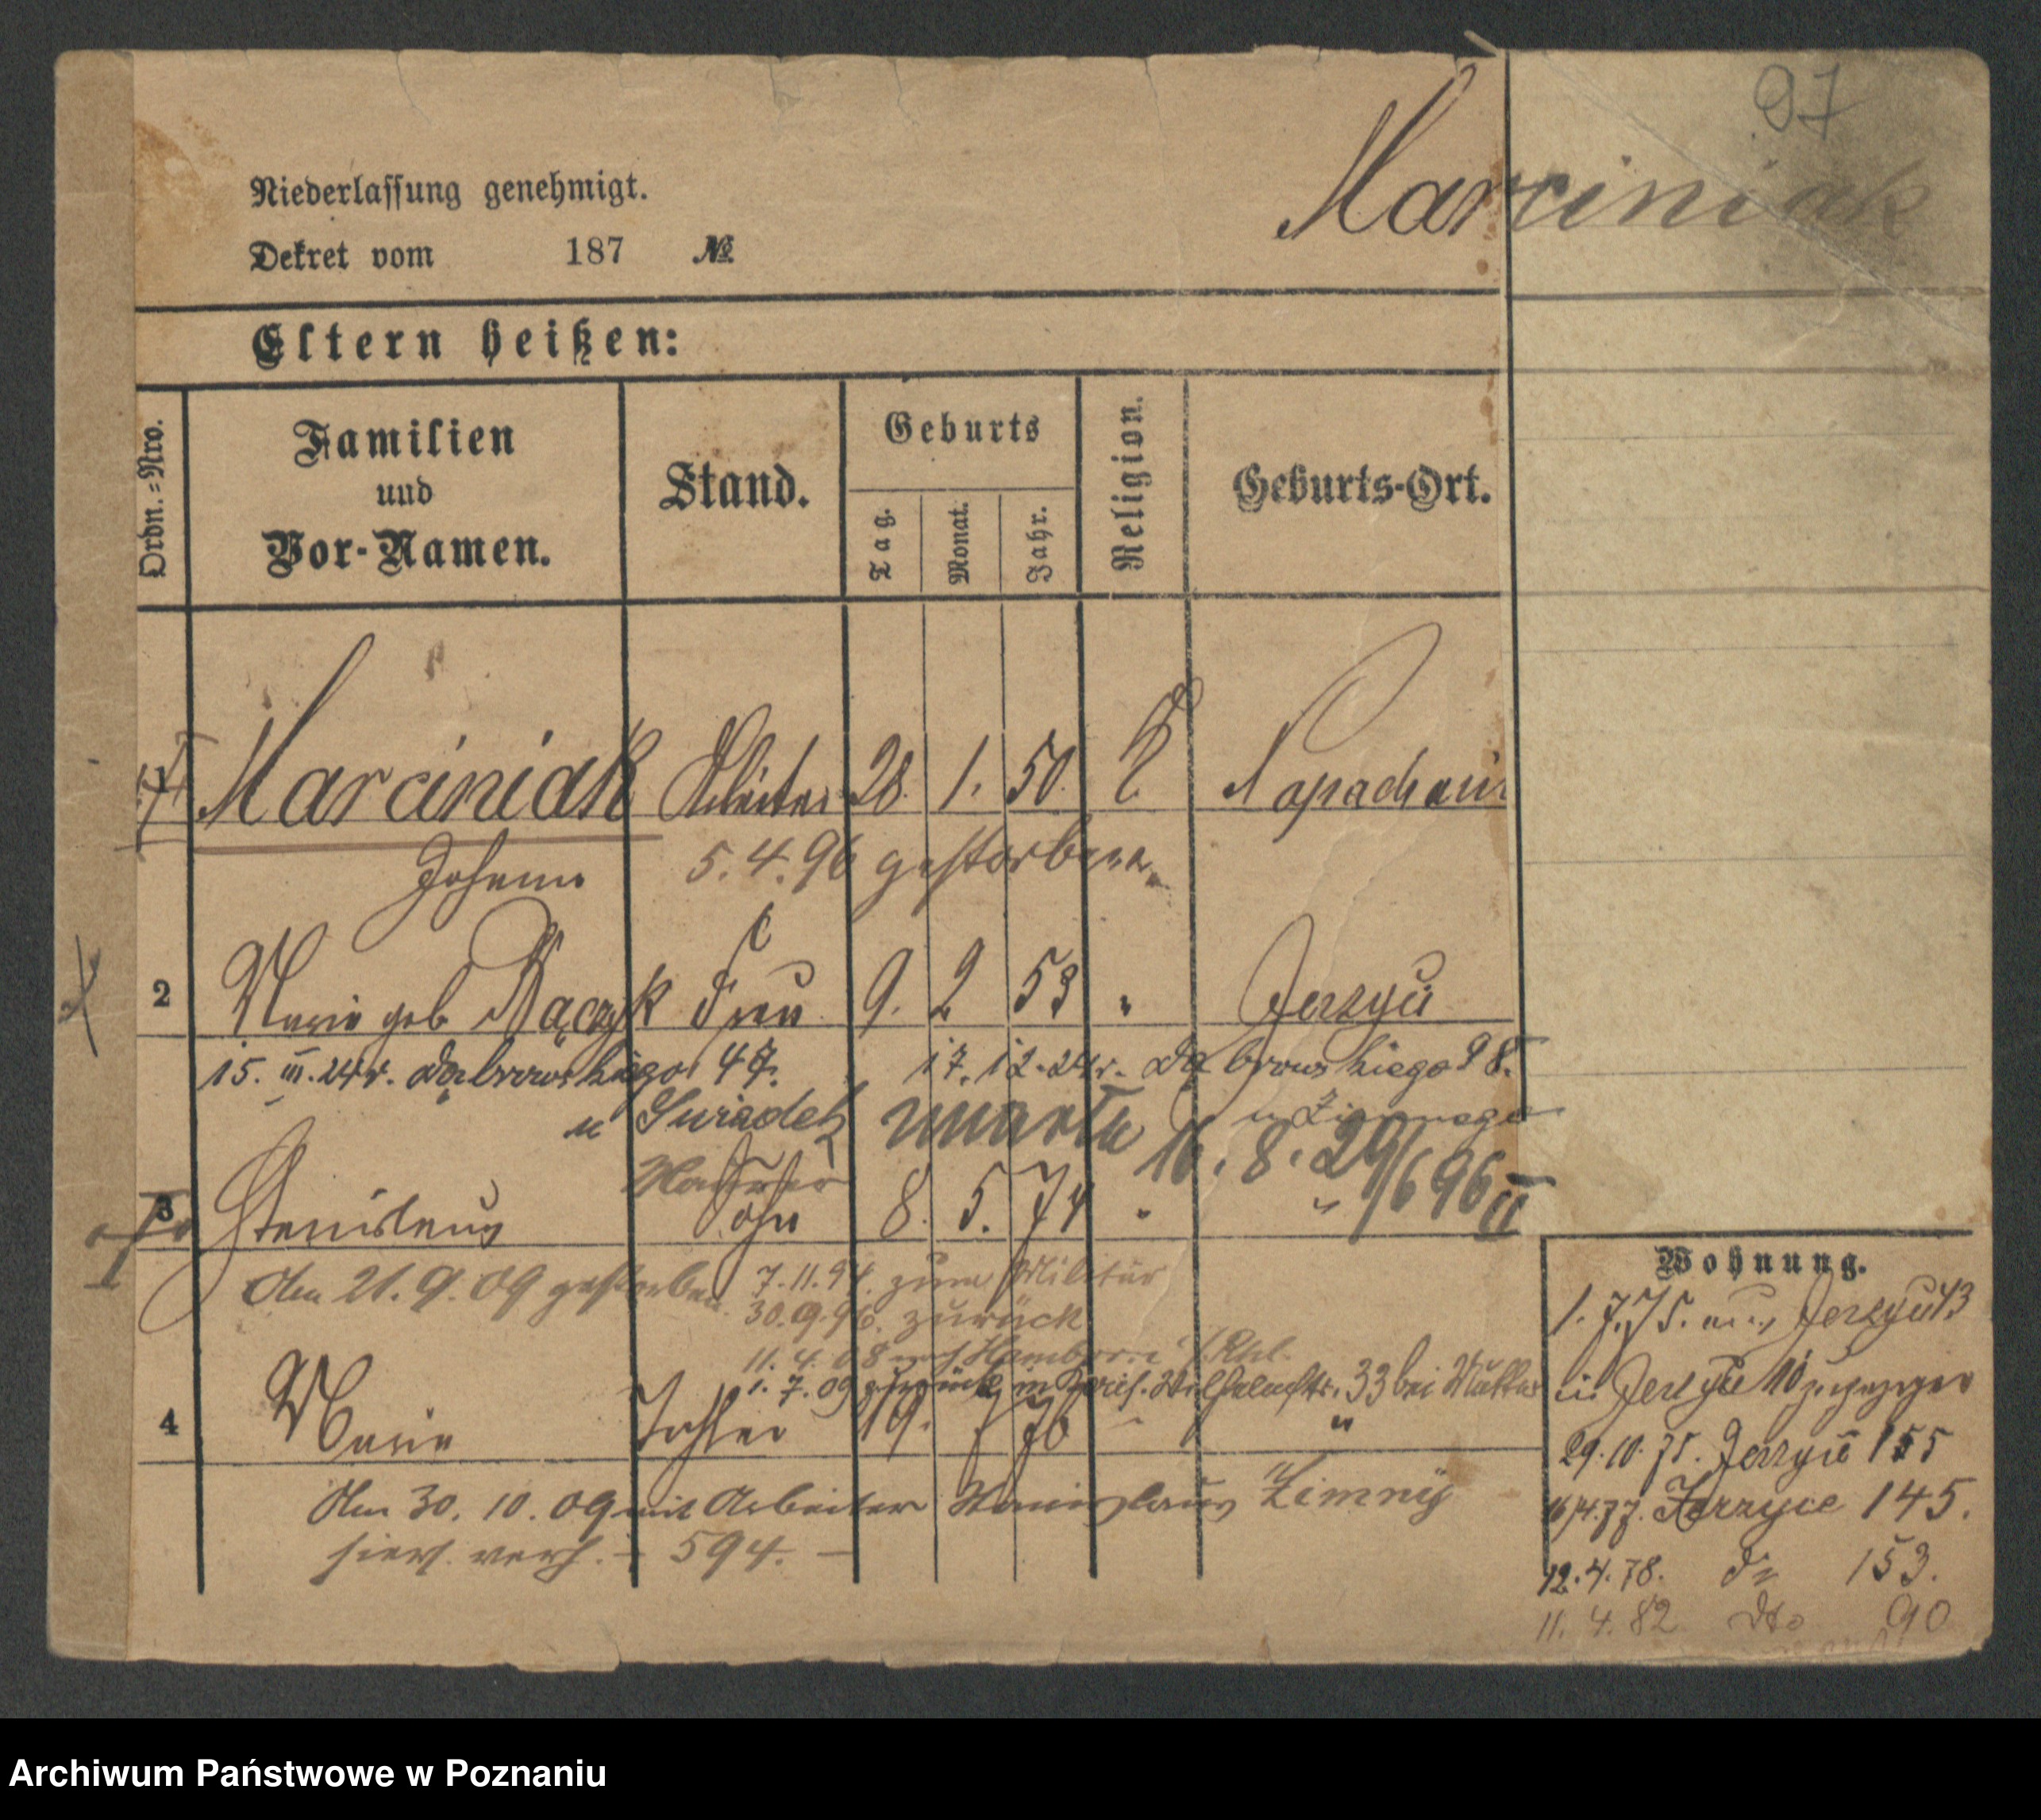 97
Marciniak
Niederlassung genehmigt.
Dekret vom 187 №
Eltern heißen:
Ordn.=Nro.
Familien und Vor-Namen.
Stand.
Geburts
Tag.
Monat.
Jahr.
Religion.
Geburts-Ort.
1 Marciniak Arbeiter 28. 1. 50.
Johann 5.4.96 gestorben.
2 Marie geb Rączyk Frau 9. 2 53 " Jerzyce
15. III. 24 r. Dąbrowskiego 47. 17.12.24 r. Dąbrowskiego 98.
u Świadek umarła u Zimnego
16.8.29
Maurer 6 96 II
3 Stanislaus Sohn 8. 5. 74 " "
Am 21.9.09 gestorben. 7.11.94. zum Militär
30.9.96. zurück
11.4.08 nach
1.7.09 zurück 33 bei Mutter
4 Marie Tochter 19. 7 76 " "
Am 30.10.09 mit Arbeiter Zimny
hiers. verh. - 594. -
Wohnung.
1.7.75. aus Jerzyce 43
in Jerzyce 10 zugezogen
29.10.75. Jerzyce 155
16/4.77. Jerzyce 145.
12.4.78. do 153.
11.4.82 dto 90
Archiwum Państwowe w Poznaniu